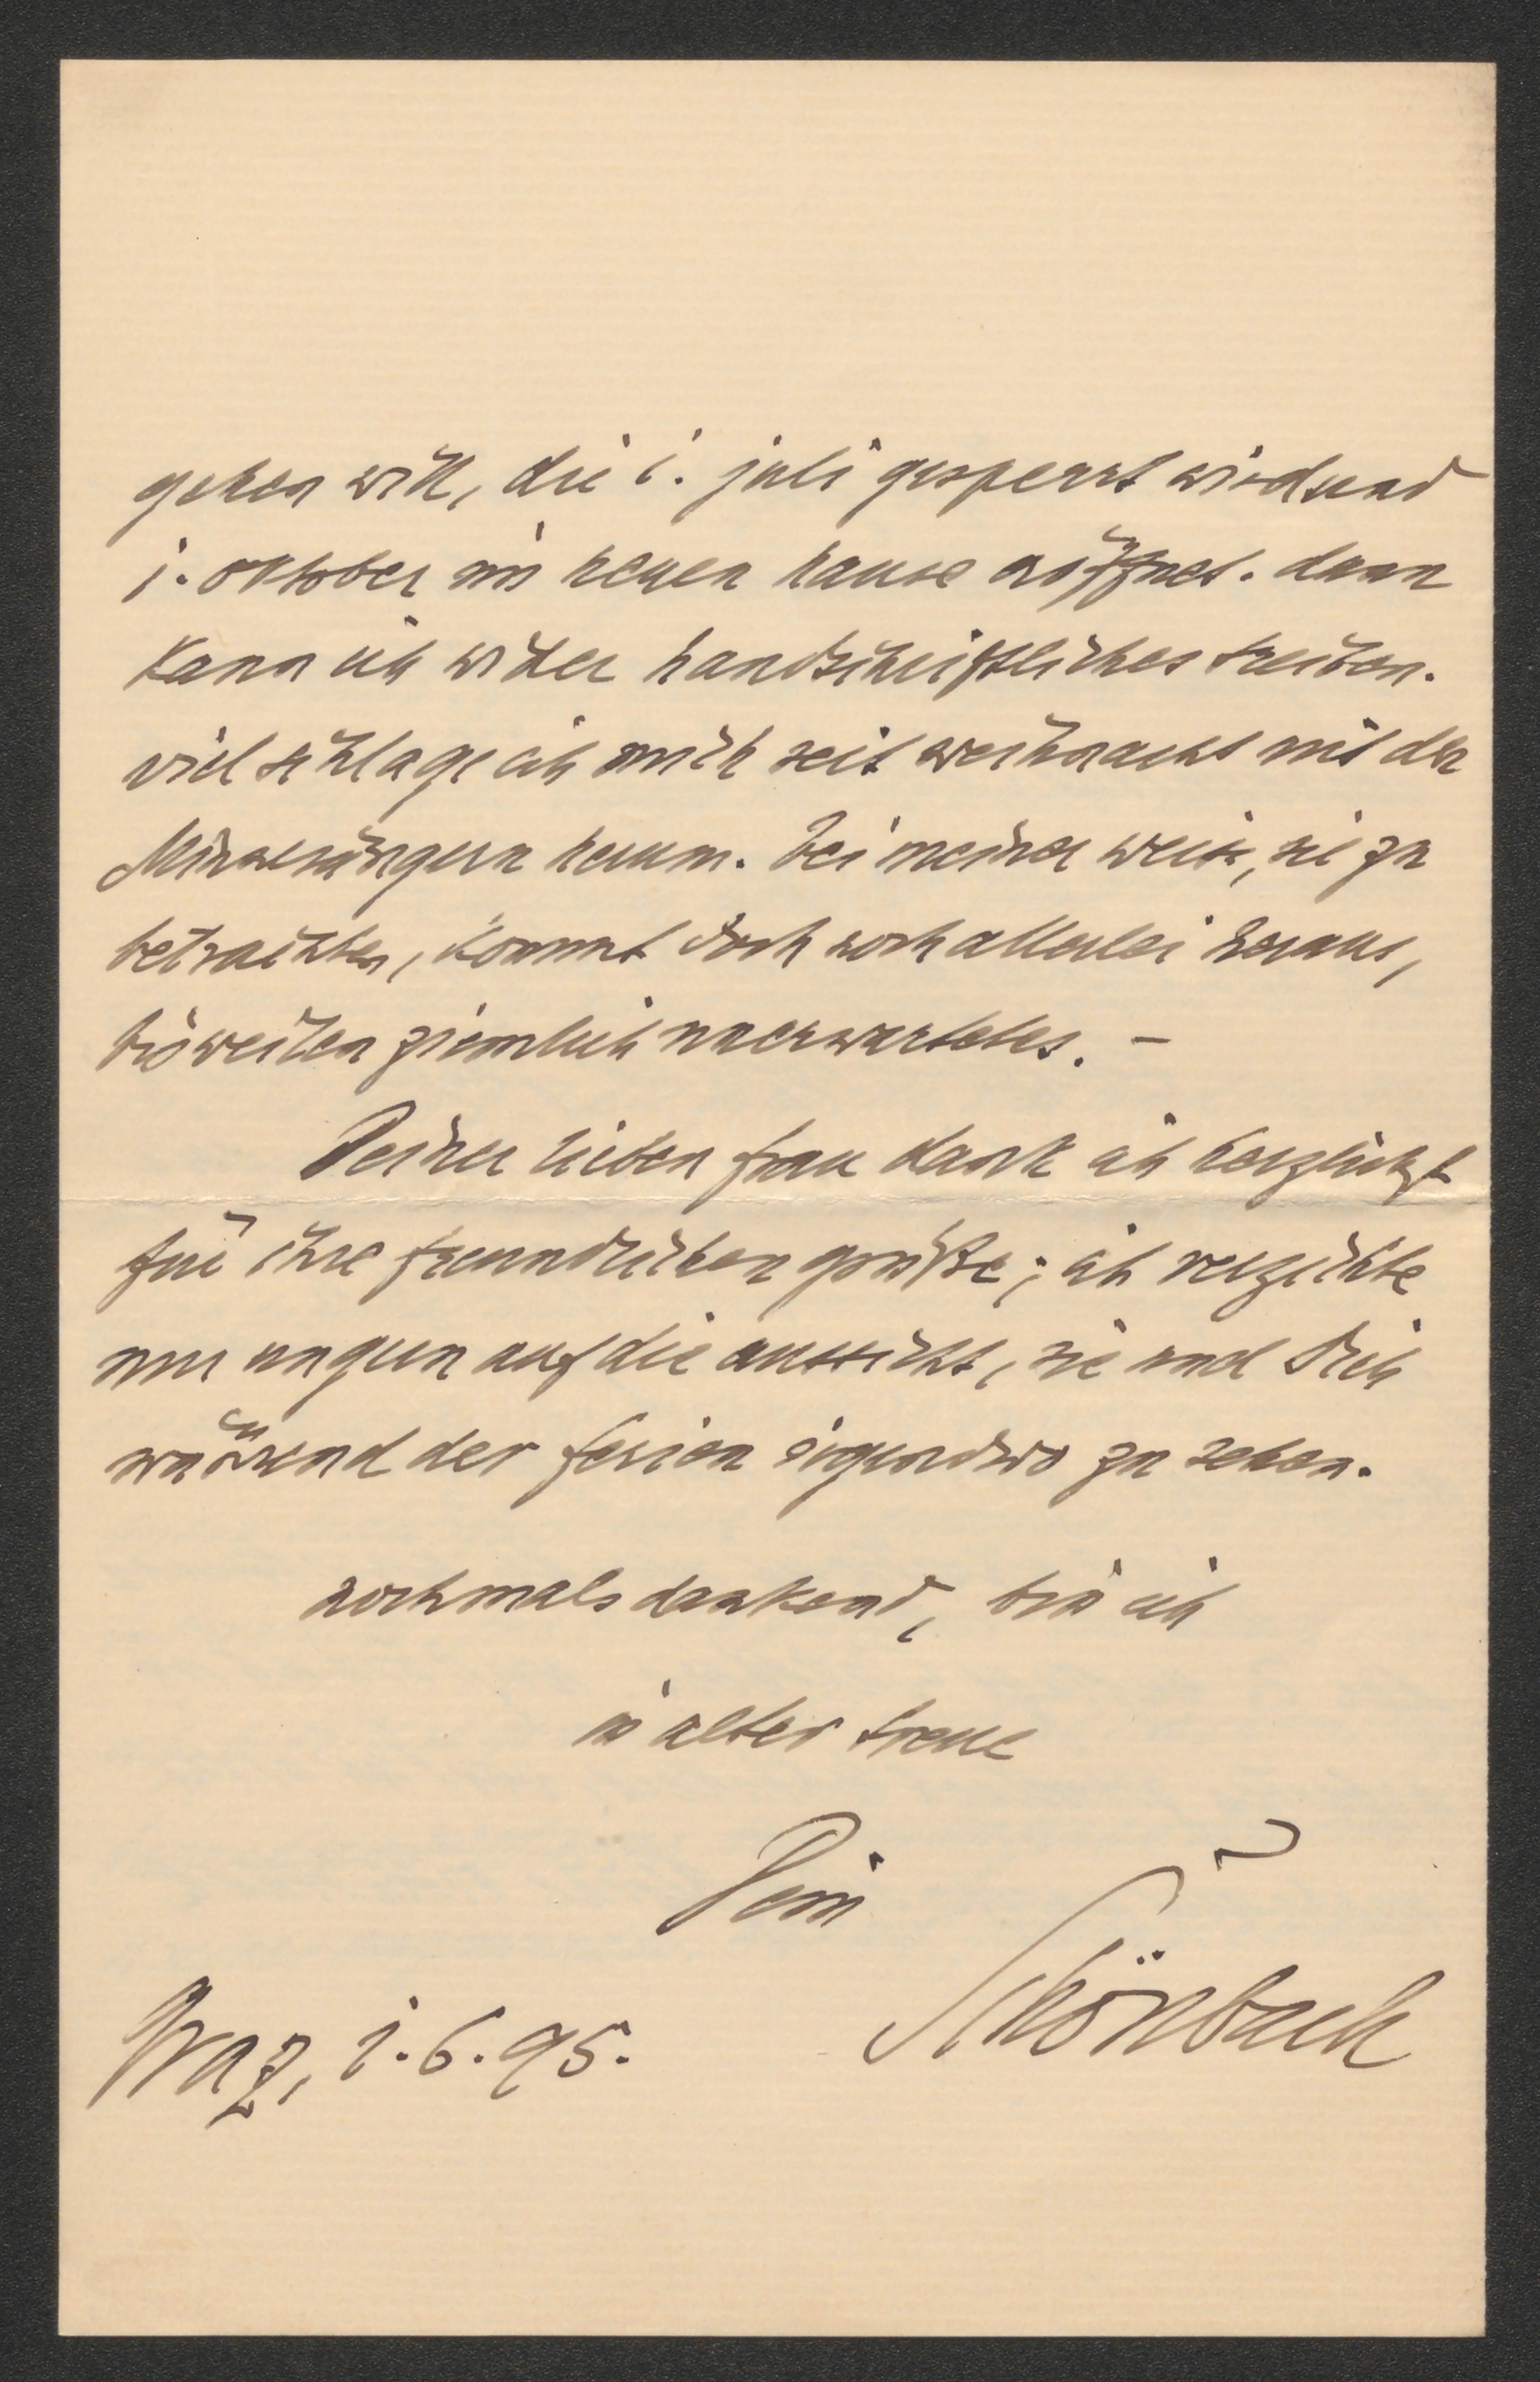 gehen will, die 1. juli gesperrt wird und
1. oktober im neuen hause eröffnet. dann
kann ich wider handschriftliches treiben.
viel schlage ich mich seit weihnacht mit den
Minnesängern herum. bei meiner weise, sie zu
betrachten, kommt doch noch allerlei heraus,
bisweilen ziemlich unerwartetes. –
Deiner lieben frau dank ich herzlichst
für ihre freundlichen grüße; ich verzichte
nur ungern auf die aussicht, sie und Dich
während der ferien irgendwo zu sehen.
nochmals dankend, bin ich
in alter treue
Dein
Schönbach
Graz, 1.6.95.